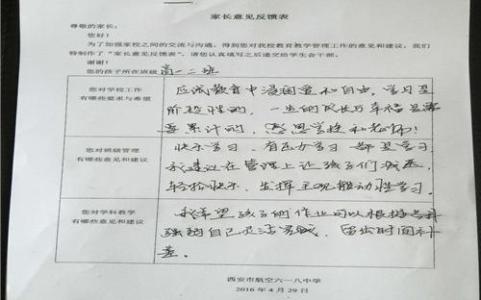 家长意见反馈表
尊敬的家长：
您好！
为了加强家校之间的交流与沟通，得到您对我校教育教学管理工作的意见和建议，我们
特制作了“家长意见反馈表”，请您认真填写之后递交给学生会干部。
谢谢！
您的孩子所在班级 高一二班
您对学校工作
有哪些要求与希望
应试教育中浸润重和自由，学习是
阶段性的，一生的成长与幸福是需
要累计的，感恩学校和老师！
您对班级管理
有哪些意见和建议
快乐学习，有压力学习都是学习，
我建议在管理上让孩子们减压，
轻松快乐，发挥主观能动性学习。
您对学科教学
有哪些意见和建议
我希望孩子的作业可以根据
强弱自己灵活完成，留出时间补
差。
西安市航空六一八中学
2016年4月29日